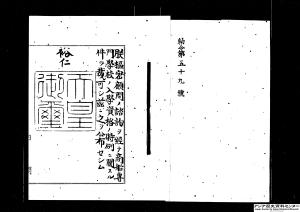 勅令第五十九號
朕樞密顧問ノ諮詢ヲ經テ高等專
門學校ノ入學資格ノ特例ニ關スル
件ヲ裁可シ茲ニ之ヲ公布セシム
裕仁
天皇
御璽
アジア歴史資料センター